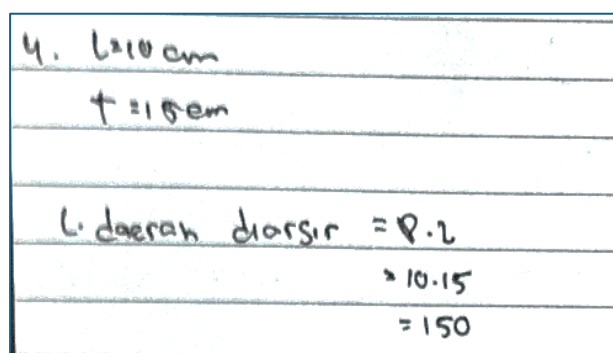 4. l=10 cm
t=15 cm
L. daerah diarsir = P.l
= 10.15
= 150